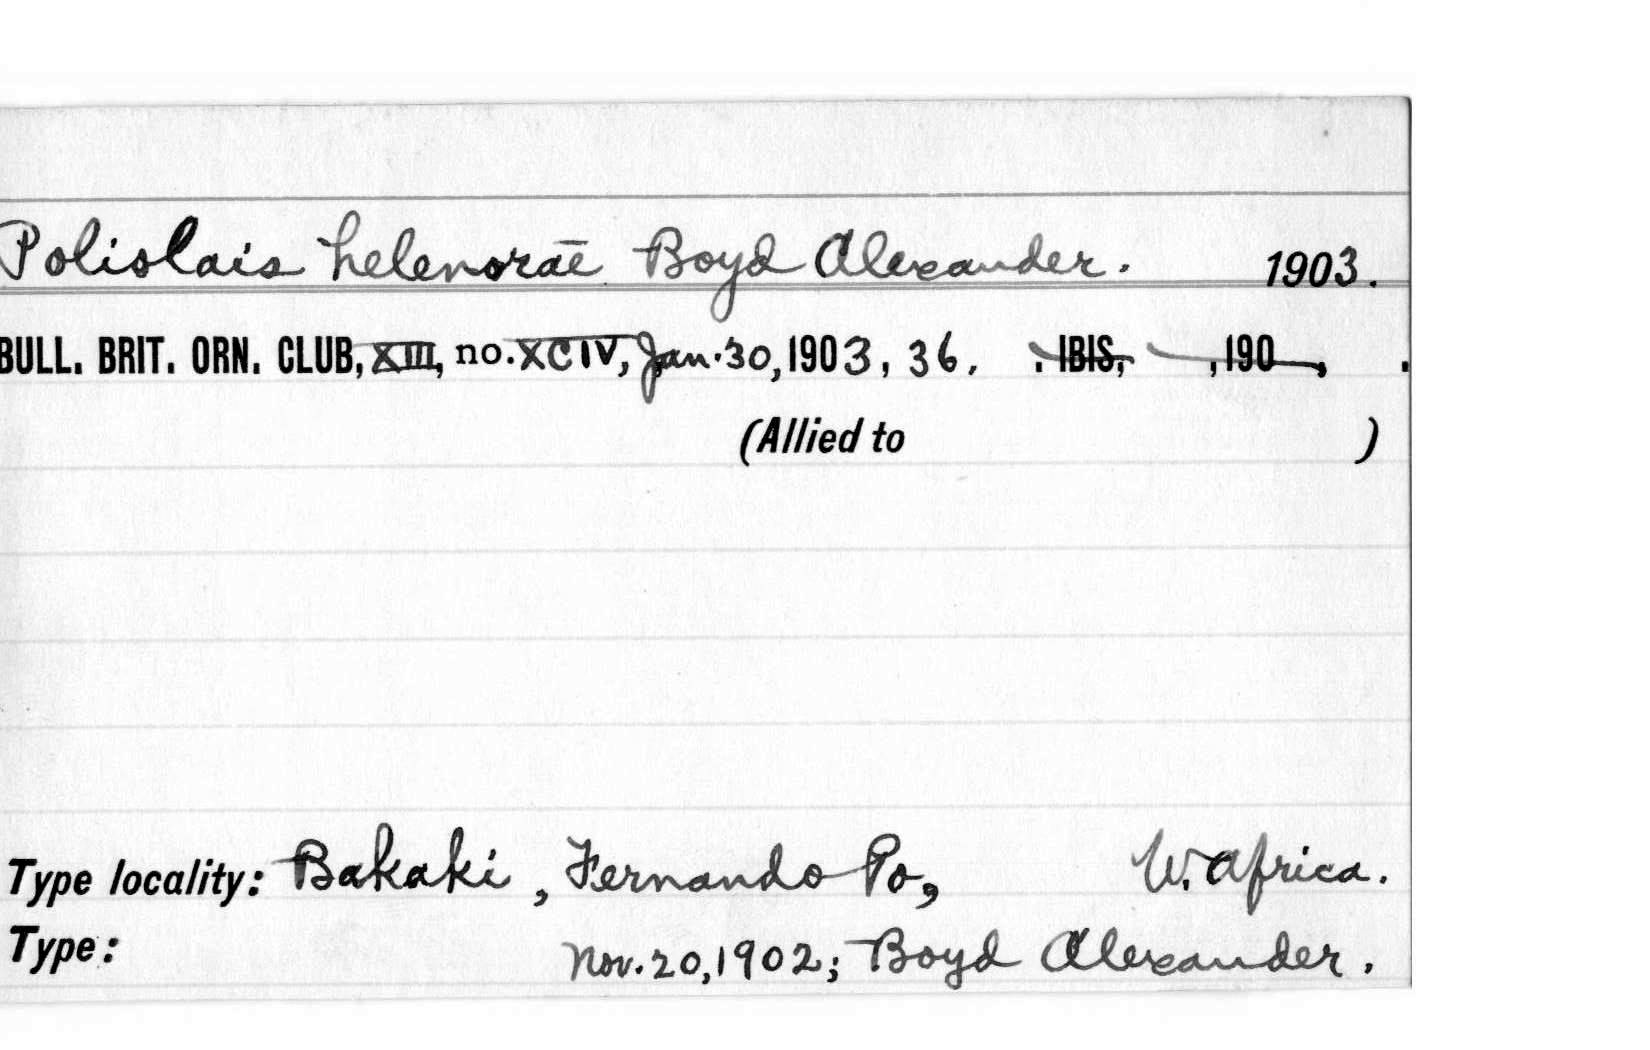 Poliolais helenorae Boyd Alexander. 1903.
BULL. BRIT. ORN. CLUB, XIII, no. XCIV, Jan. 30, 1903, 36. . IBIS, , 190 , .
(Allied to )
Type locality: Bakaki, Fernando Po, W. Africa.
Type: Nov. 20, 1902; Boyd Alexander.